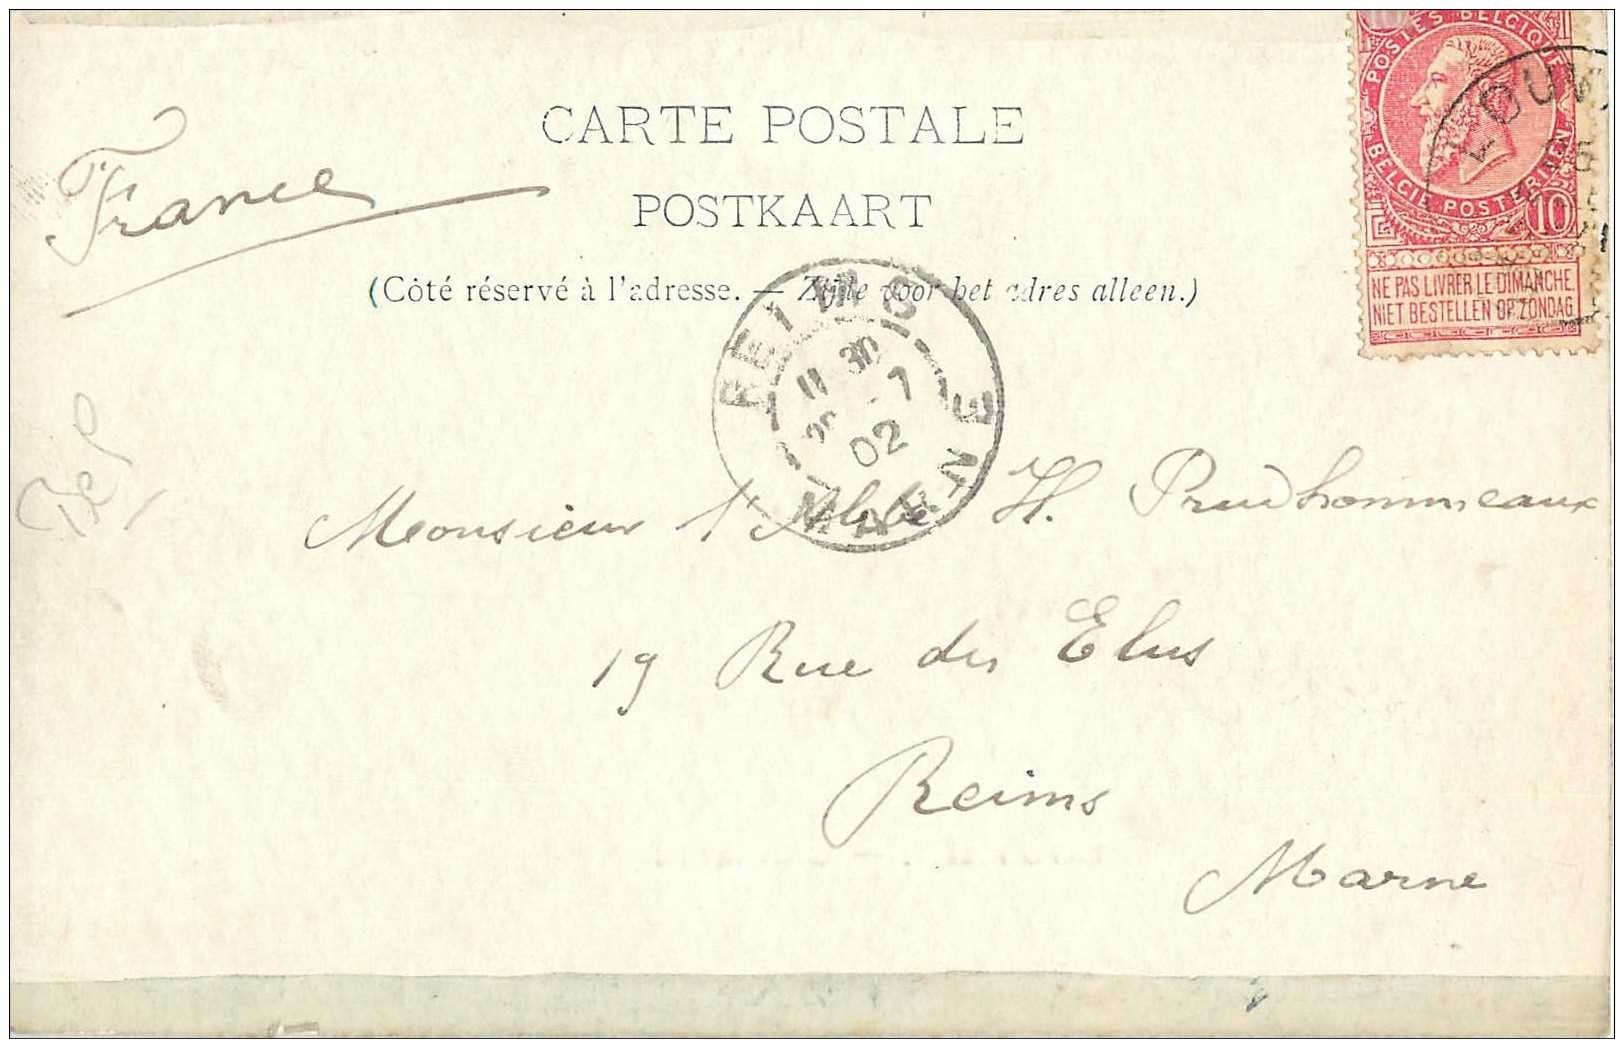 POSTES BELGIQUE
BELGIE POSTERIJEN
10
NE PAS LIVRER LE DIMANCHE
NIET BESTELLEN OP ZONDAG
LOUV
CARTE POSTALE
POSTKAART
France
(Côté réservé à l'adresse. — Zijde voor het adres alleen.)
REIMS
11 30
7
02
MARNE
Bel
Monsieur l'Abbé H. Prudhommeaux
19 Rue des Elus
Reims
Marne